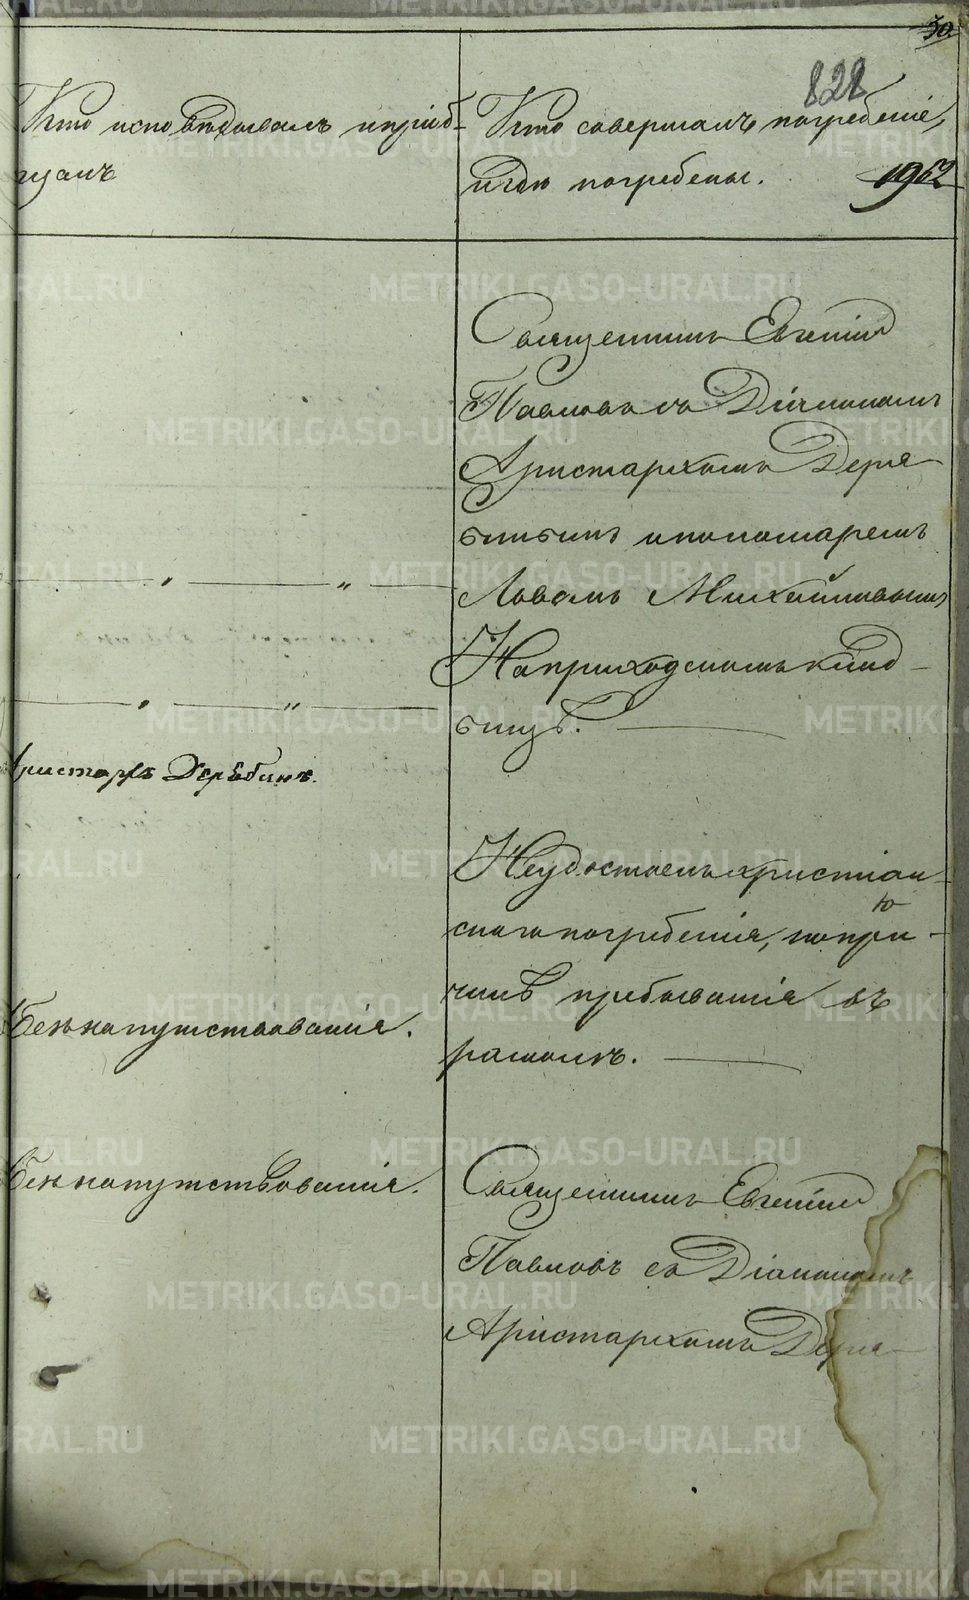 30.
828
1952
Кто исповѣдывалъ и пріоб-
щалъ
Кто совершалъ погребеніе,
и гдѣ погребены.
Священникъ Евгеній
Павловъ съ Діакономъ
Аристархомъ Деря-
бинымъ и пономаремъ
Львомъ Михайловымъ
На приходскомъ клад-
бищѣ.
Аристархъ Дерябинъ.
Неудостоенъ христіан-
скаго погребенія, по при-
ю
чинѣ пребыванія въ
расколѣ.
Безъ напутствованія.
Безъ напутствованія.
Священникъ Евгеній
Павловъ съ Діакономъ
Аристархомъ Деря-
METRIKI.GASO-URAL.RU